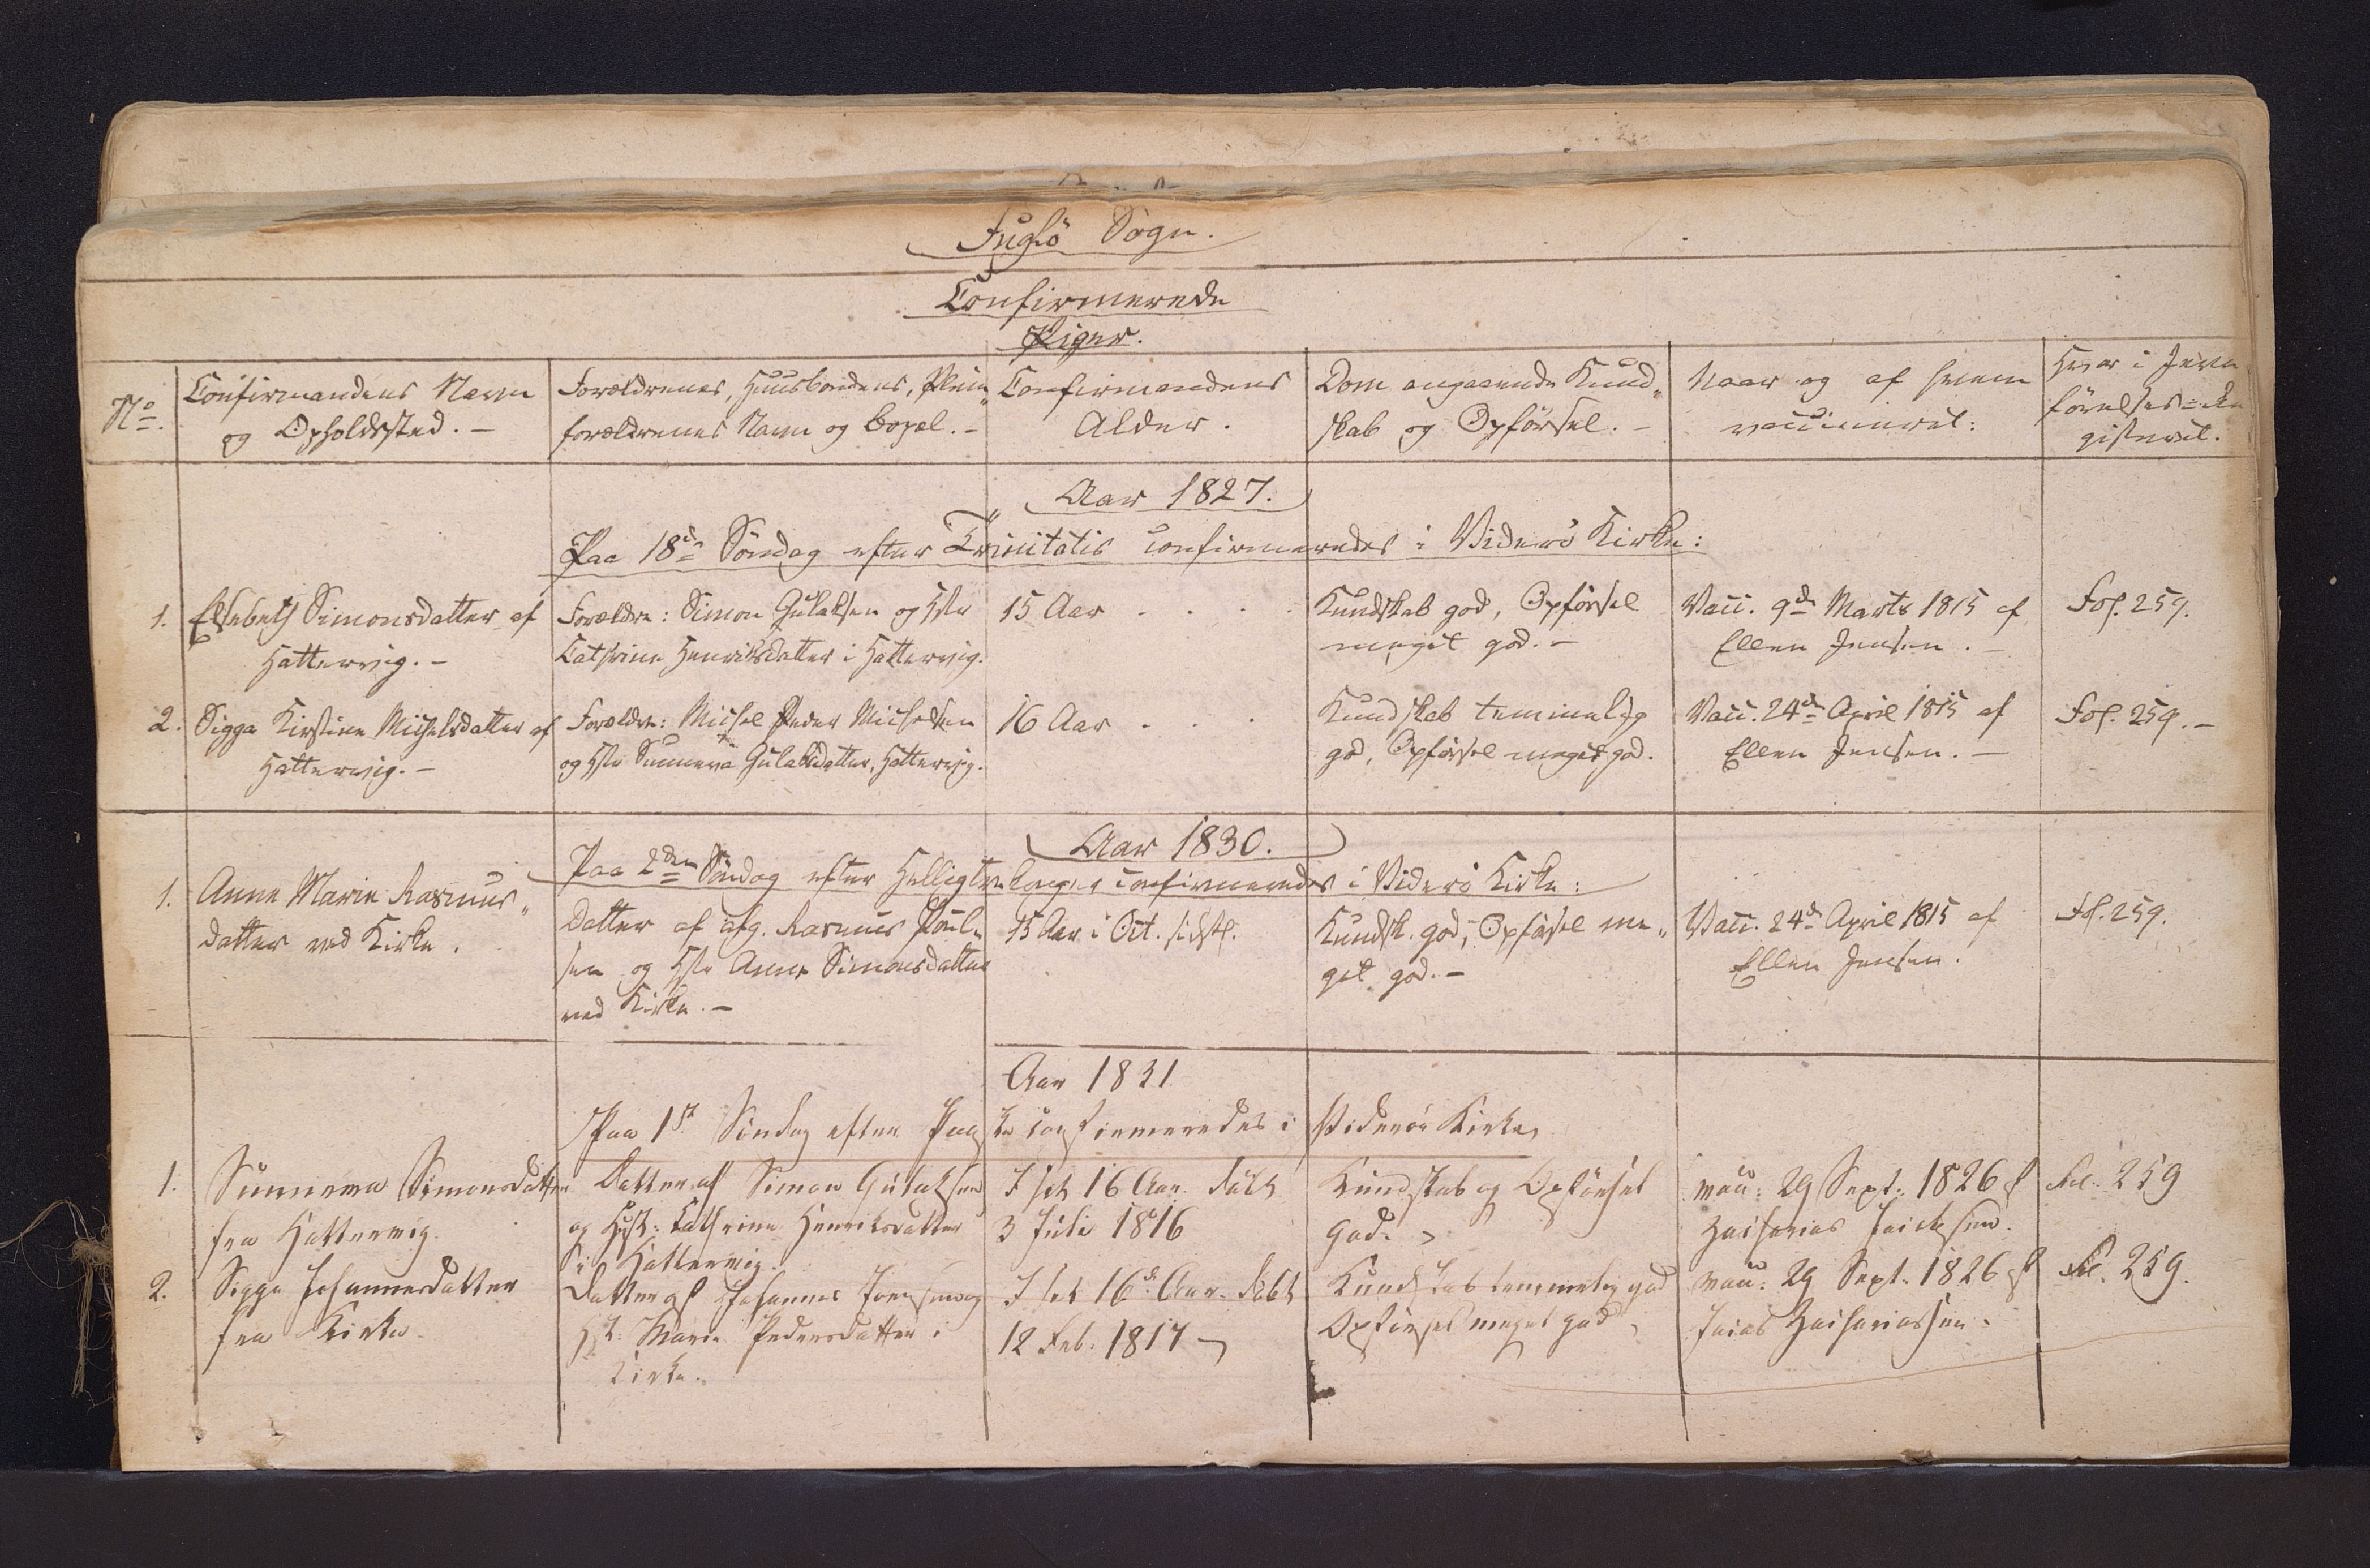 Fuglö Sogn.
Confirmerede
Piger.
No.
Confirmandens Navn
og Opholdssted. -
Forældrenes, Huusbondens, Pleie„
forældrenes Navn og Bopæl. -
Confirmandens
Alder.
Dom angaaende Kund„
skab og Opförsel. -
Naar og af hvem
vaccineret:
Hvor i Jevn
förelses-Re
gisteret.
Aar 1827.
Paa 18de Söndag efter Trinitatis confirmeredes i Viderö Kirke:
1. Elsebeth Simonsdatter af
Hattervig. -
Forældre: Simon Gulaksen og Hstr
Cathrine Henriksdatter i Hattervig.
15 Aar . . . .
Kundskab god, Opförsel
meget god. -
Vacc. 9de Marts 1815 af
Ellen Jensen. -
Fol. 259.
2. Sigga Kirstine Michelsdatter af
Hattervig. -
Forældre: Michel Peder Michelsen
og Hstr Sunneva Gulaksdatter, Hattervig.
16 Aar . . .
Kundskab temmelig
god, Opförsel meget god.
Vacc. 24de April 1815 af
Ellen Jensen. -
Fol. 259. -
Aar 1830.
Paa 2den Söndag efter Helligtrekonger confirmeredes i Viderö Kirke:
1. Anne Marie Rasmus„
datter ved Kirke.
Datter af afg. Rasmus Poul„
sen og Hstr Anne Simonsdatter
ved Kirke. -
15 Aar i Oct. sidstl.
Kundsk. god, Opförsel me„
get god. -
Vacc. 24de April 1815 af
Ellen Jensen.
Fol. 259.
Aar 1831
Paa 1st Söndag efter Paaske confirmeredes i Viderö Kirke,
1. Sunneva Simonsdatter
fra Hattervig.
Datter af Simon Gulaksen
og Hust: Cathrine Henriksdatter
i Hattervig.
I sit 16 Aar. födt
3 Juli 1816
Kundskab og Opförsel
god.
vacc: 29 Sept: 1826 af
Zacharias
Fol. 259
2. Sigga Johannesdatter
fra Kirke.
Datter af Johannes Joensen og
Hst: Marie Pedersdatter i
Kirke.
I sit 16de Aar. födt
12 Feb. 1817
Kundskab temmelig god
Opförsel meget god,
vacc: 29 Sept. 1826 af
Zachariassen.
Fol. 259.